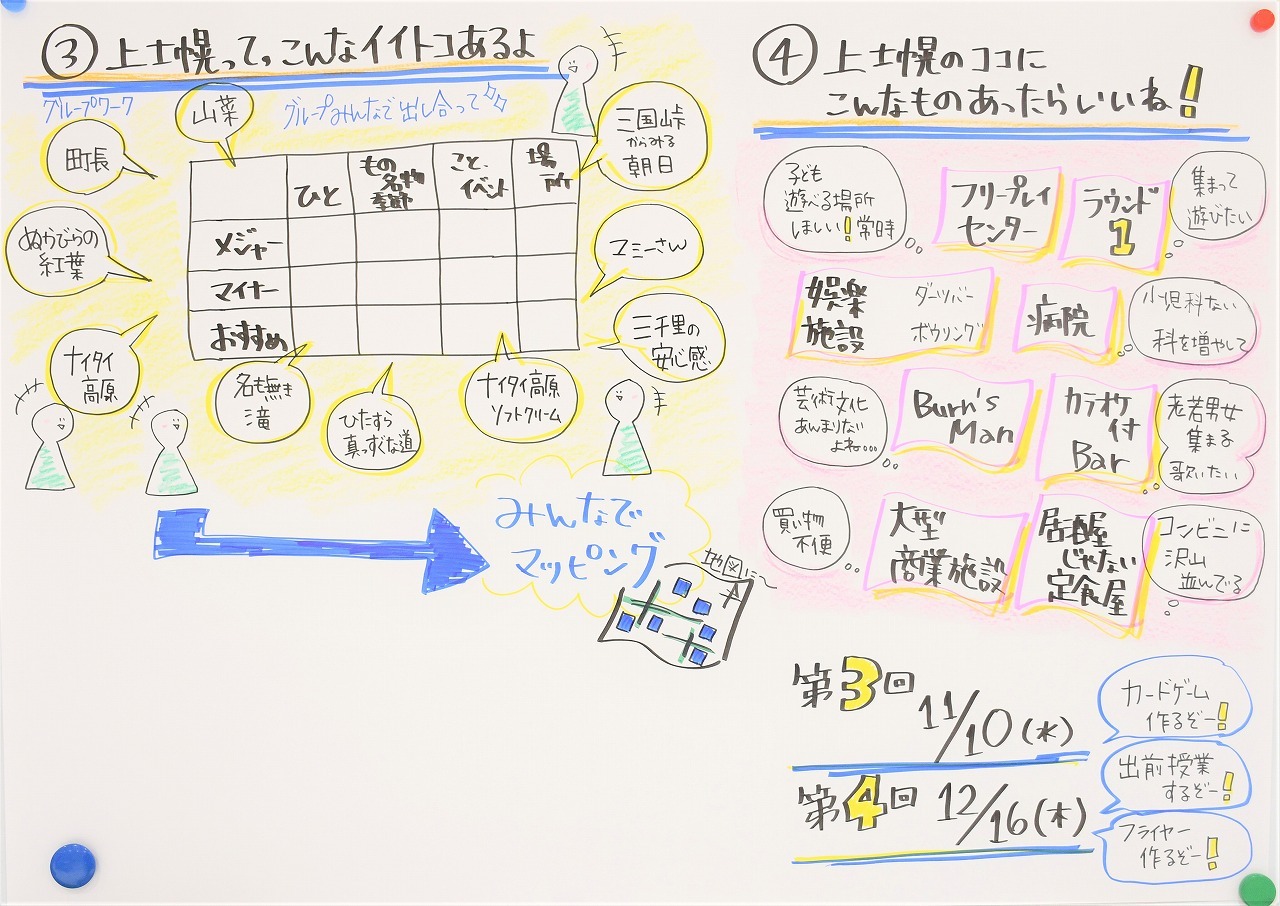 ③ 上士幌って、こんなイイトコあるよ
グループワーク
グループみんなで出し合って
山菜
町長
ぬかびらの
紅葉
ナイタイ
高原
三国峠
からみる
朝日
マミーさん
三千里の
安心感
ひと
もの
名物
季節
こと、
イベント
場
所
メジャー
マイナー
おすすめ
名も無き
滝
ひたすら
真っすぐな道
ナイタイ高原
ソフトクリーム
みんなで
マッピング
地図に〜
④ 上士幌のココに
こんなものあったらいいね!
子ども
遊べる場所
ほしい!常時
フリープレイ
センター
ラウンド
1
集まって
遊びたい
娯楽
施設
ダーツバー
ボウリング
病院
小児科ない
科を増やして
芸術文化
あんまりない
よね…
Burn's
Man
カラオケ
付
Bar
老若男女
集まる
歌いたい
買い物
不便
大型
商業施設
居酒屋
じゃない
定食屋
コンビニに
沢山
並んでる
第3回 11/10(水)
第4回 12/16(木)
カードゲーム
作るぞー!
出前授業
するぞー!
フライヤー
作るぞー!